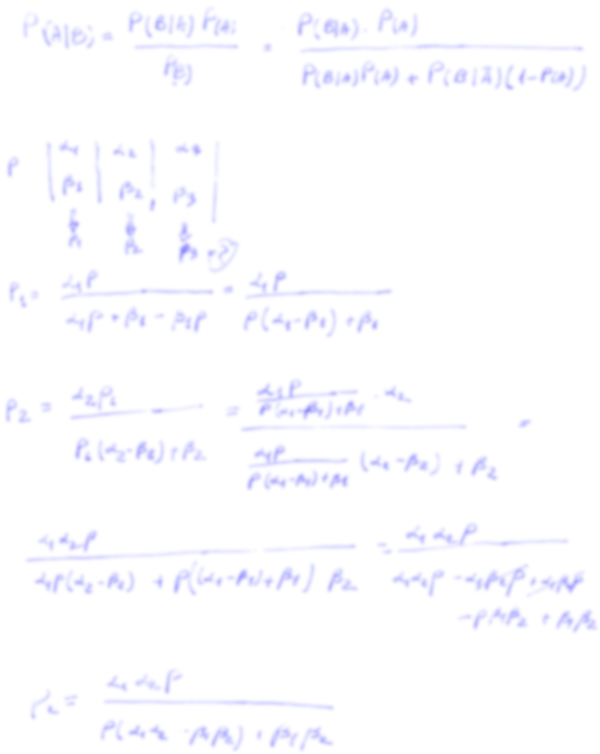 P(A|B) = P(B|A) P(A) / P(B) = P(B|A) · P(A) / P(B|A)P(A) + P(B|Ā)(1-P(A))
P | α1 | α2 | α3 |
β1 | β2 | β3
P1 P2 P3
P1 = α1P / α1P + β1 - β1P = α1P / P(α1-β1) + β1
P2 = α2P1 / P1(α2-β2) + β2 = α1P / P(α1-β1)+β1 · α2 / α1P / P(α1-β1)+β1 (α2-β2) + β2 =
α1α2P / α1P(α2-β2) + P((α1-β1)+β1) β2 = α1α2P / α1α2P - α1β2P + α1β2P
-Pβ1β2 + β1β2
P2 = α1α2P / P(α1α2 - β1β2) + β1β2